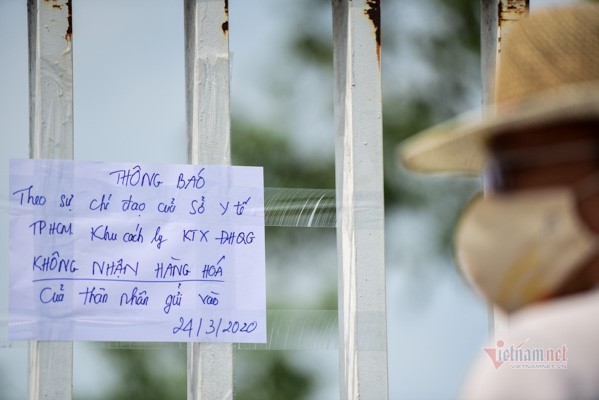 THÔNG BÁO
Theo sự chỉ đạo của Sở Y tế
TPHCM Khu cách ly KTX ĐHQG
KHÔNG NHẬN HÀNG HOÁ
Của thân nhân gửi vào
24/3/2020
Vietnamnet
VIETNAMNET.VN